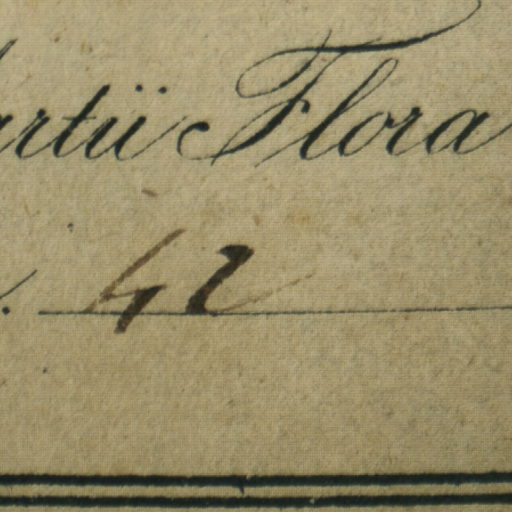 artii Flora
. 42